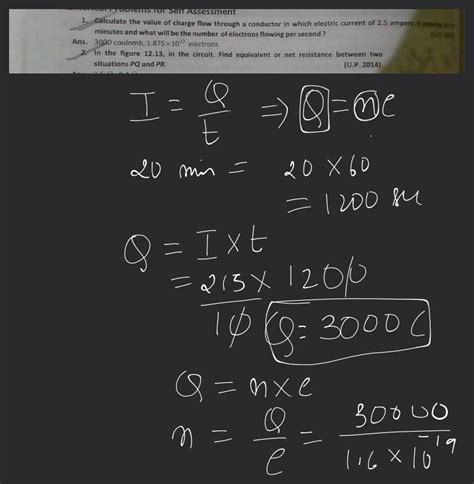 Problems for Self Assessment
1. Calculate the value of charge flow through a conductor in which electric current of 2.5 ampere
minutes and what will be the number of electrons flowing per second?
Ans. 3000 coulomb, 1.875×10²² electrons.
2. In the figure 12.13, in the circuit. Find equivalent or net resistance between two
situations PQ and PR. (U.P. 2014)
I = Q/t ⇒ Q = ne
20 min = 20 × 60
= 1200 sec
Q = I × t
= 25 × 1200 / 10
Q = 3000 C
Q = n × e
n = Q/e = 30000 / 1.6 × 10⁻¹⁹